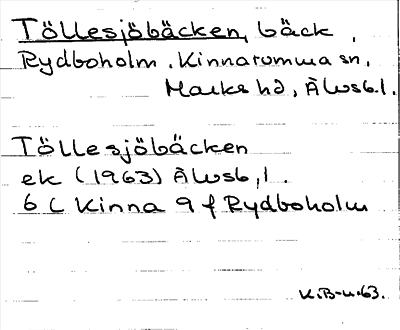 Töllesjöbäcken, bäck,
Rydboholm. Kinnarumma sn,
Marks hd, Älvsb.l.
Töllesjöbäcken
ek (1963) Älvsb,l.
6 C Kinna 9 f Rydboholm
K.B-u.63.